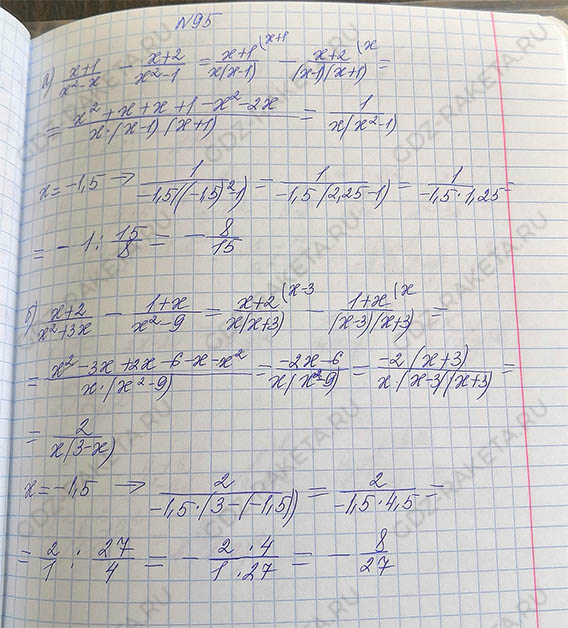 N95
а) (x+1)/(x²-x) - (x+2)/(x²-1) = (x+1)/(x(x-1)) (x+1 - (x+2)/((x-1)(x+1)) (x =
= (x²+x+x+1-x²-2x)/(x·(x-1)(x+1)) = 1/(x(x²-1))
x=-1,5 → 1/(-1,5((-1,5)²-1)) = 1/(-1,5(2,25-1)) = 1/(-1,5·1,25) =
= -1 : 15/8 = - 8/15
б) (x+2)/(x²+3x) - (1+x)/(x²-9) = (x+2)/(x(x+3)) (x-3 - (1+x)/((x-3)(x+3)) (x =
= (x²-3x+2x-6-x-x²)/(x·(x²-9)) = (-2x-6)/(x(x²-9)) = (-2(x+3))/(x·(x-3)(x+3)) =
= 2/(x(3-x))
x=-1,5 → 2/(-1,5·(3-(-1,5)) = 2/(-1,5·4,5) =
= 2/1 : 27/4 = - (2·4)/(1·27) = - 8/27
GDZ-RAKETA.RU